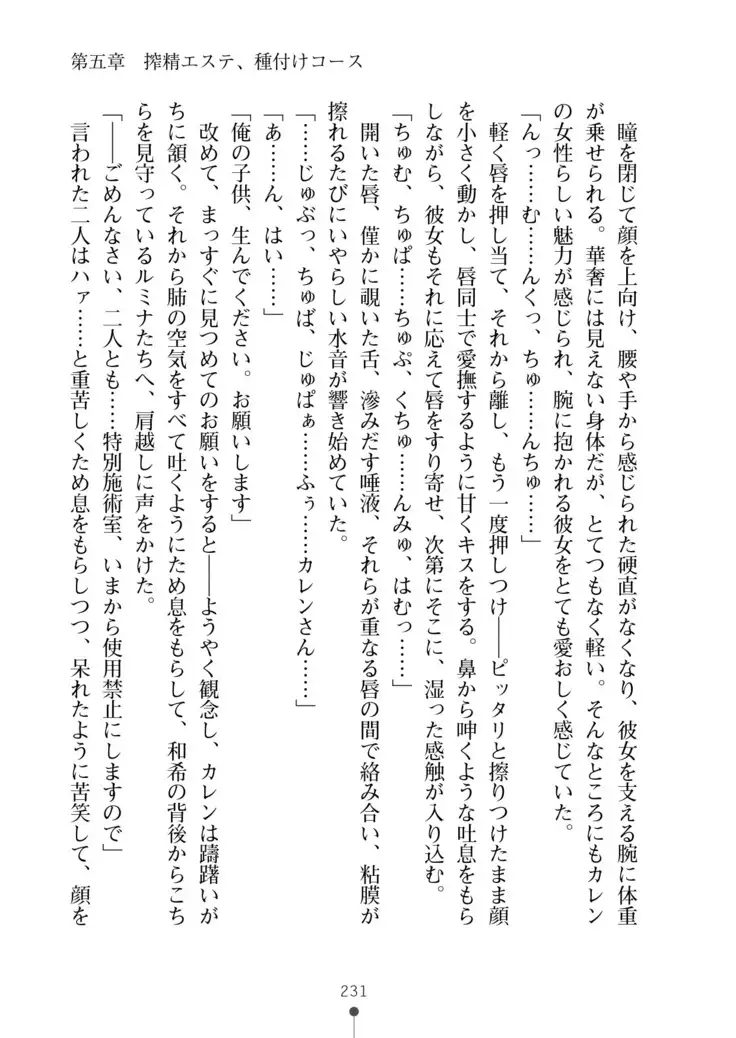 第五章　搾精エステ、種付けコース
　瞳を閉じて顔を上向け、腰や手から感じられた硬直がなくなり、彼女を支える腕に体重
が乗せられる。華奢には見えない身体だが、とてつもなく軽い。そんなところにもカレン
の女性らしい魅力が感じられ、腕に抱かれる彼女をとても愛おしく感じていた。
「んっ……む……んくっ、ちゅ……んちゅ……」
　軽く唇を押し当て、それから離し、もう一度押しつけ――ピッタリと擦りつけたまま顔
を小さく動かし、唇同士で愛撫するように甘くキスをする。鼻から呻くような吐息をもら
しながら、彼女もそれに応えて唇をすり寄せ、次第にそこに、湿った感触が入り込む。
「ちゅむ、ちゅぱ……ちゅぷ、くちゅ……んみゅ、はむっ……」
　開いた唇、僅かに覗いた舌、滲みだす唾液、それらが重なる唇の間で絡み合い、粘膜が
擦れるたびにいやらしい水音が響き始めていた。
「……じゅぶっ、ちゅば、じゅぱぁ……ふぅ……カレンさん……」
「あ……ん、はい……」
「俺の子供、生んでください。お願いします」
　改めて、まっすぐに見つめてのお願いをすると――ようやく観念し、カレンは躊躇いが
ちに頷く。それから肺の空気をすべて吐くようにため息をもらして、和希の背後からこち
らを見守っているルミナたちへ、肩越しに声をかけた。
「――ごめんなさい、二人とも……特別施術室、いまから使用禁止にしますので」
　言われた二人はハァ……と重苦しくため息をもらしつつ、呆れたように苦笑して、顔を
231